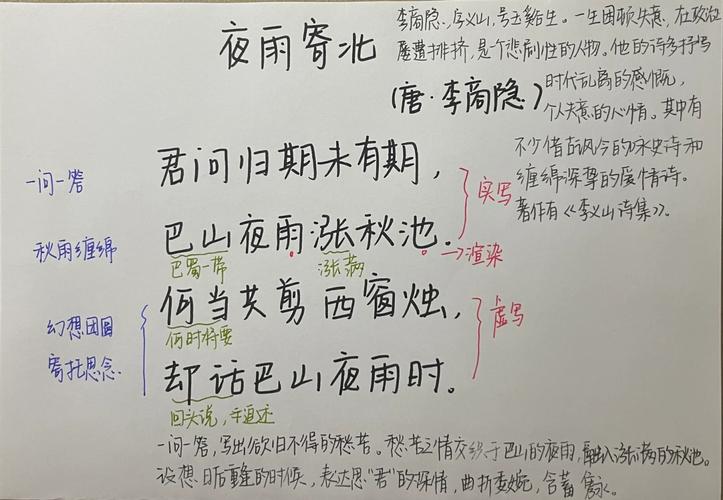 夜雨寄北
李商隐，字义山，号玉谿生。一生困顿失意，在政治
屡遭排挤，是个悲剧性的人物。他的诗多抒写
(唐·李商隐)
时代乱离的感慨，
个人失意的心情。其中有
不少借古讽今的咏史诗和
缠绵深挚的爱情诗。
著作有《李义山诗集》。
一问一答
君问归期未有期，
实写
秋雨缠绵
巴山夜雨涨秋池.
→渲染
巴蜀一带
涨满
幻想团圆
何当共剪西窗烛，
虚写
何时将要
寄托思念
却话巴山夜雨时。
回头说，千追述
一问一答，写出欲归不得的愁苦。愁苦之情交织于巴山的夜雨，融入涨满的秋池。
设想日后重逢的时候，表达思"君"的深情，曲折委婉，含蓄隽永。